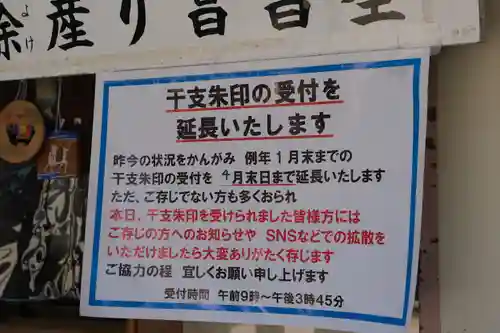 干支朱印の受付を
延長いたします
昨今の状況をかんがみ 例年1月末までの
干支朱印の受付を 4月末日まで延長いたします
ただ、ご存じでない方も多くおられ
本日、干支朱印を受けられました皆様方には
ご存じの方へのお知らせや SNSなどでの拡散を
いただけましたら大変ありがたく存じます
ご協力の程 宜しくお願い申し上げます
受付時間 午前9時〜午後3時45分